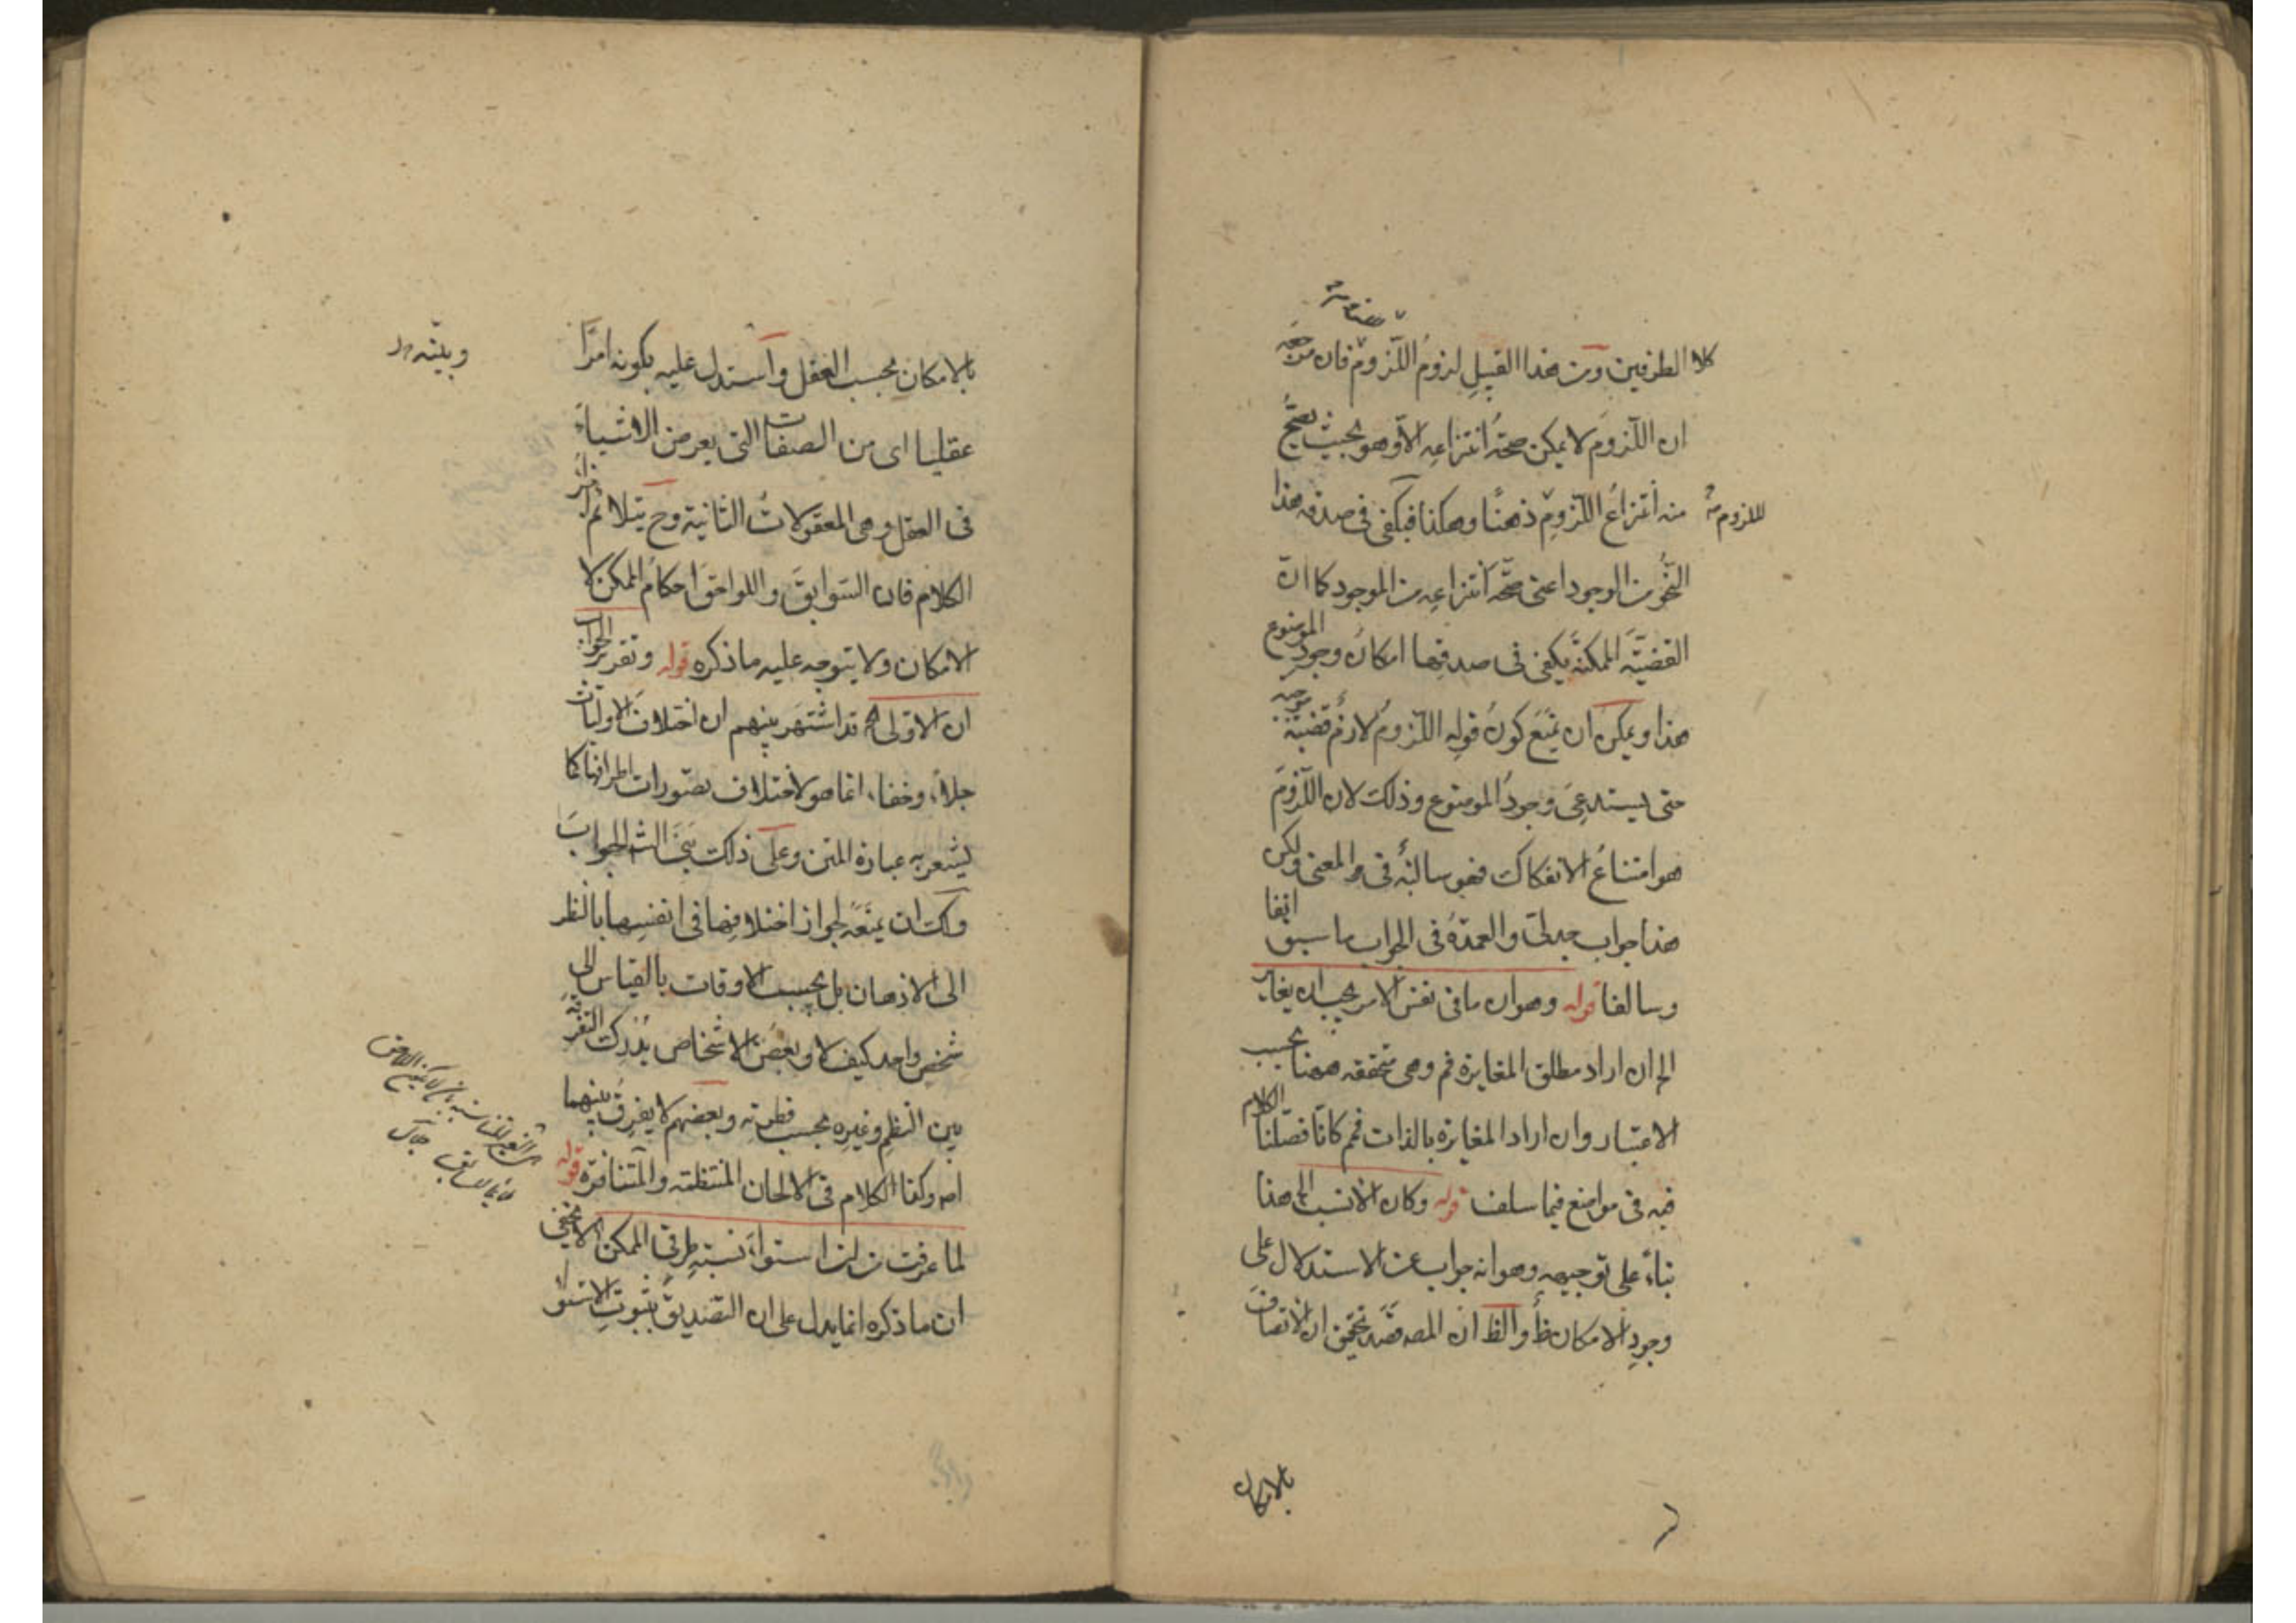 كلا الطرفين ومن هذا القبيل لزوم اللزوم فان من جهة
ان اللزوم لا يمكن صحة انتزاعه الا وهو بحيث يصح
منه انتزاع اللزوم ذهنًا وهكذا فيكفى فى صدقه هذا
للزوم
النحو من الوجود اعنى صحة انتزاعه من الموجود كما ان
القضيّة الممكنة يكفى فى صدقها امكان وجود الموضوع
هذا ويمكن ان يمنع كون قوله اللزوم لازم قضيّة موجبة
حتى يستدعى وجود الموضوع وذلك لان اللزوم
هو امتناع الانفكاك فهو سالبة فى المعنى ولكن
هذا جواب جدلى والعمدة فى الجواب ما سبق انفا
وسالفا قوله وهو ان ما فى نفس الامر يجب ان يغاير
الخ ان اراد مطلق المغايرة فم وهى متحققة ههنا بحسب
الاعتبار وان اراد المغايرة بالذات فم كما فصّلنا الكلام
فيه فى مواضع فيما سلف قوله وكان الانسب الخ هذا
بناءً على توجيهه وهو انه جواب عن الاستدلال على
وجود الامكان والظ ان المصـ قصد تحقيق ان الاتصاف
بالامكان
بالامكان بحسب العقل واستدل عليه بكونه امرًا
وبيّنه
عقليا اى من الصفات التى يعرض الاشياء
فى العقل وهى المعقولات الثانية وح يتلائم اجزاء
الكلام فان السّوابق واللواحق احكام الممكن لا
الامكان ولا يتوجه عليه ما ذكره قوله وتقرير الجواب
ان الاولى الخ قد اشتهر بينهم ان اختلاف الاوليات
جلاءً وخفاء، انما هو لاختلاف تصّورات اطرافها كما
يشعر به عبارة المتن وعلى ذلك بنى الش الجواب
ولك ان يمنعه لجواز اختلافها فى انفسها بالنظر
الى الاذهان بل بحسب الاوقات بالقياس الى
شخص واحد كيف لا وبعض الاشخاص يدرك التفرقة
بين النظم وغيره بحسب فطرته وبعضهم لا يفرق بينهما
اصـ وكذا الكلام فى الالحان المنتظمة والمتنافرة قوله
لما عرفت من ان استواء نسبة طرفى الممكن الخ لا يخفى
ان ما ذكره انما يدل على ان التصديق بثبوت الاستواء